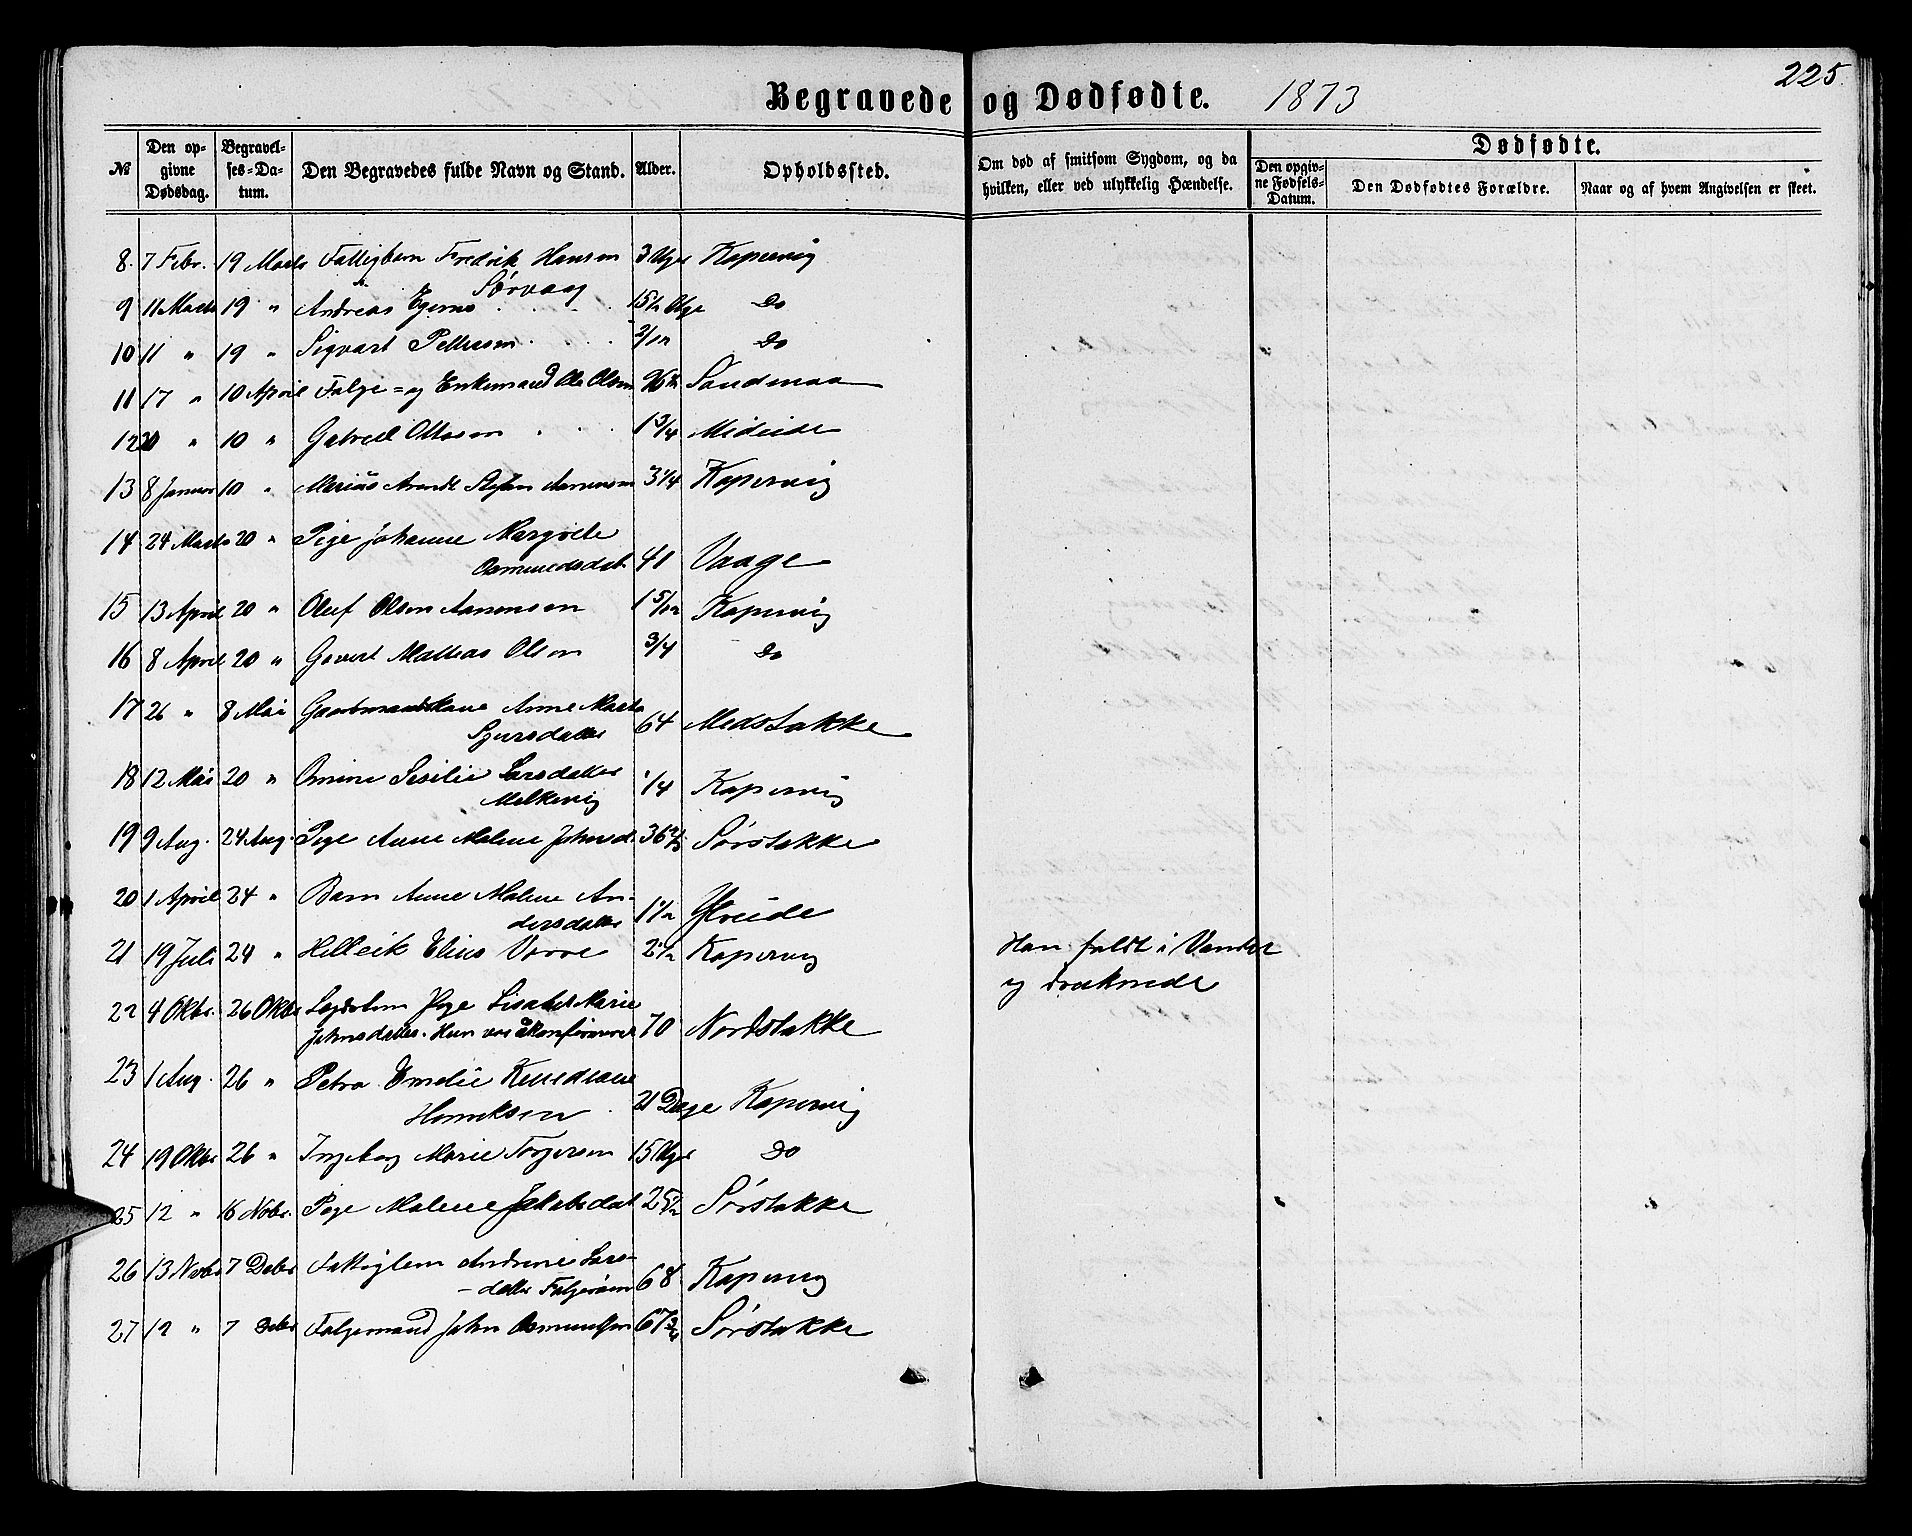 225.
Begravede og Dødfødte. 1873
№ Den opgivne Dødsdag. Begravelses-Datum. Den Begravedes fulde Navn og Stand. Alder. Opholdssted. Om død af smitsom Sygdom, og da hvilken, eller ved ulykkelig Hændelse. Dødfødte. Den opgivne Fødsels-Datum. Den Dødfødtes Forældre. Naar og af hvem Angivelsen er skeet.
8. 7 Febr. 19 Marts Fattigbarn Fredrik Hansen 3 Uger Kopervig
Sørvaag
9 11 Marts 19 " Andreas 15½ Uge Do
10 11 " 19 " Sigvart Pettersen 2/12 Do
11 17 " 10 April Folge= og Enkemand Ole Olsen Sandmaa
12 10 " Gabriel Ottosen 1 3/4 Mideide
13 8 Januar 10 " Arnesen 3 1/4 Kopervig
14 24 Marts 20 " Pige Johanne Margrete
Osmundsdat. 41 Vaage
15 13 April 20 " Oluf Olsen Aanensen 1 5/12 Kopervig
16 8 April 20 " Govert Mathias Olsen 3/4 Do
17 26 " 8 Mai Gaardmandskone Anne Marta
Sjursdatter 64 Medstakke
18 12 Mai 20 " Omine Sesilie Larsdatter
Melkevig 1/4 Kopervig
19 9 Aug. 24 Aug. Pige Anne Malene Johnsd. 36 Sørstakke
20 1 April 24 " Barn Anne Malene An-
dersdatter 1½ Ytreide
21 19 Juli 24 " Helleik Elias Vorre 2½ Kopervig Han faldt i Vandet
og druknede
22 4 Oktbr. 26 Oktbr Lægdslem Pige Lisabet Marie
Johnsdatter. Hun var ukonfirmeret 70 Nordstakke
23 1 Aug. 26 " Petra Emelie
Henriksen 21 Dage Kopervig
24 19 Oktbr 26 " Ingeborg Marie Torgersen 15 Uger Do
25 12 " 16 Novbr. Pige Malene Jakobsdat 25½ Sørstakke
26 13 Novbr 7 Debr Fattiglem Andrine Lars-
datter 68 Kopervig
27 12 " 7 Debr Folgemand John Osmundsen 67 Sørstakke